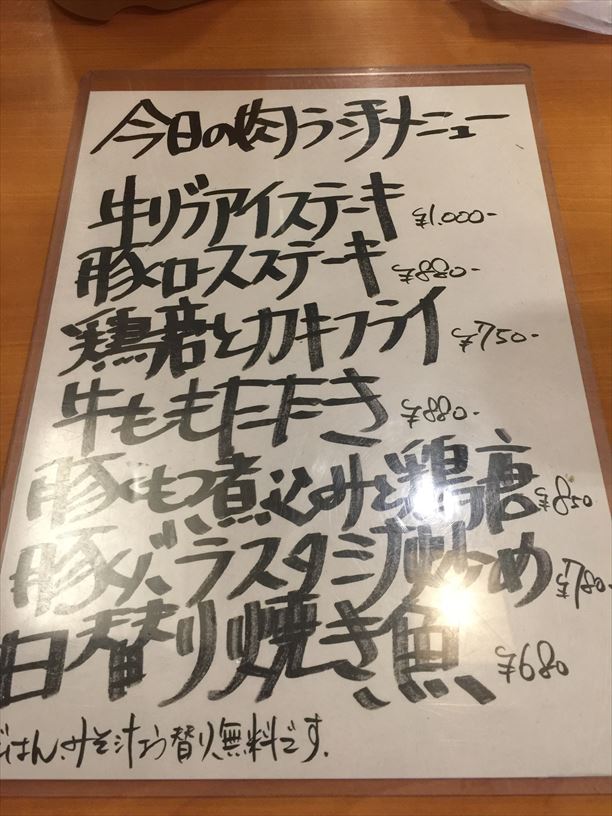 今日の肉ランチメニュー
牛リブアイステーキ ¥1.000-
豚ロースステーキ ¥880-
鶏唐とカキフライ ¥750-
牛ももたたき ¥880-
豚もつ煮込みと鶏唐 ¥850
豚バラスタミナ炒め ¥780-
日替り焼き魚 ¥680
ごはん、みそ汁おう替り、無料です.